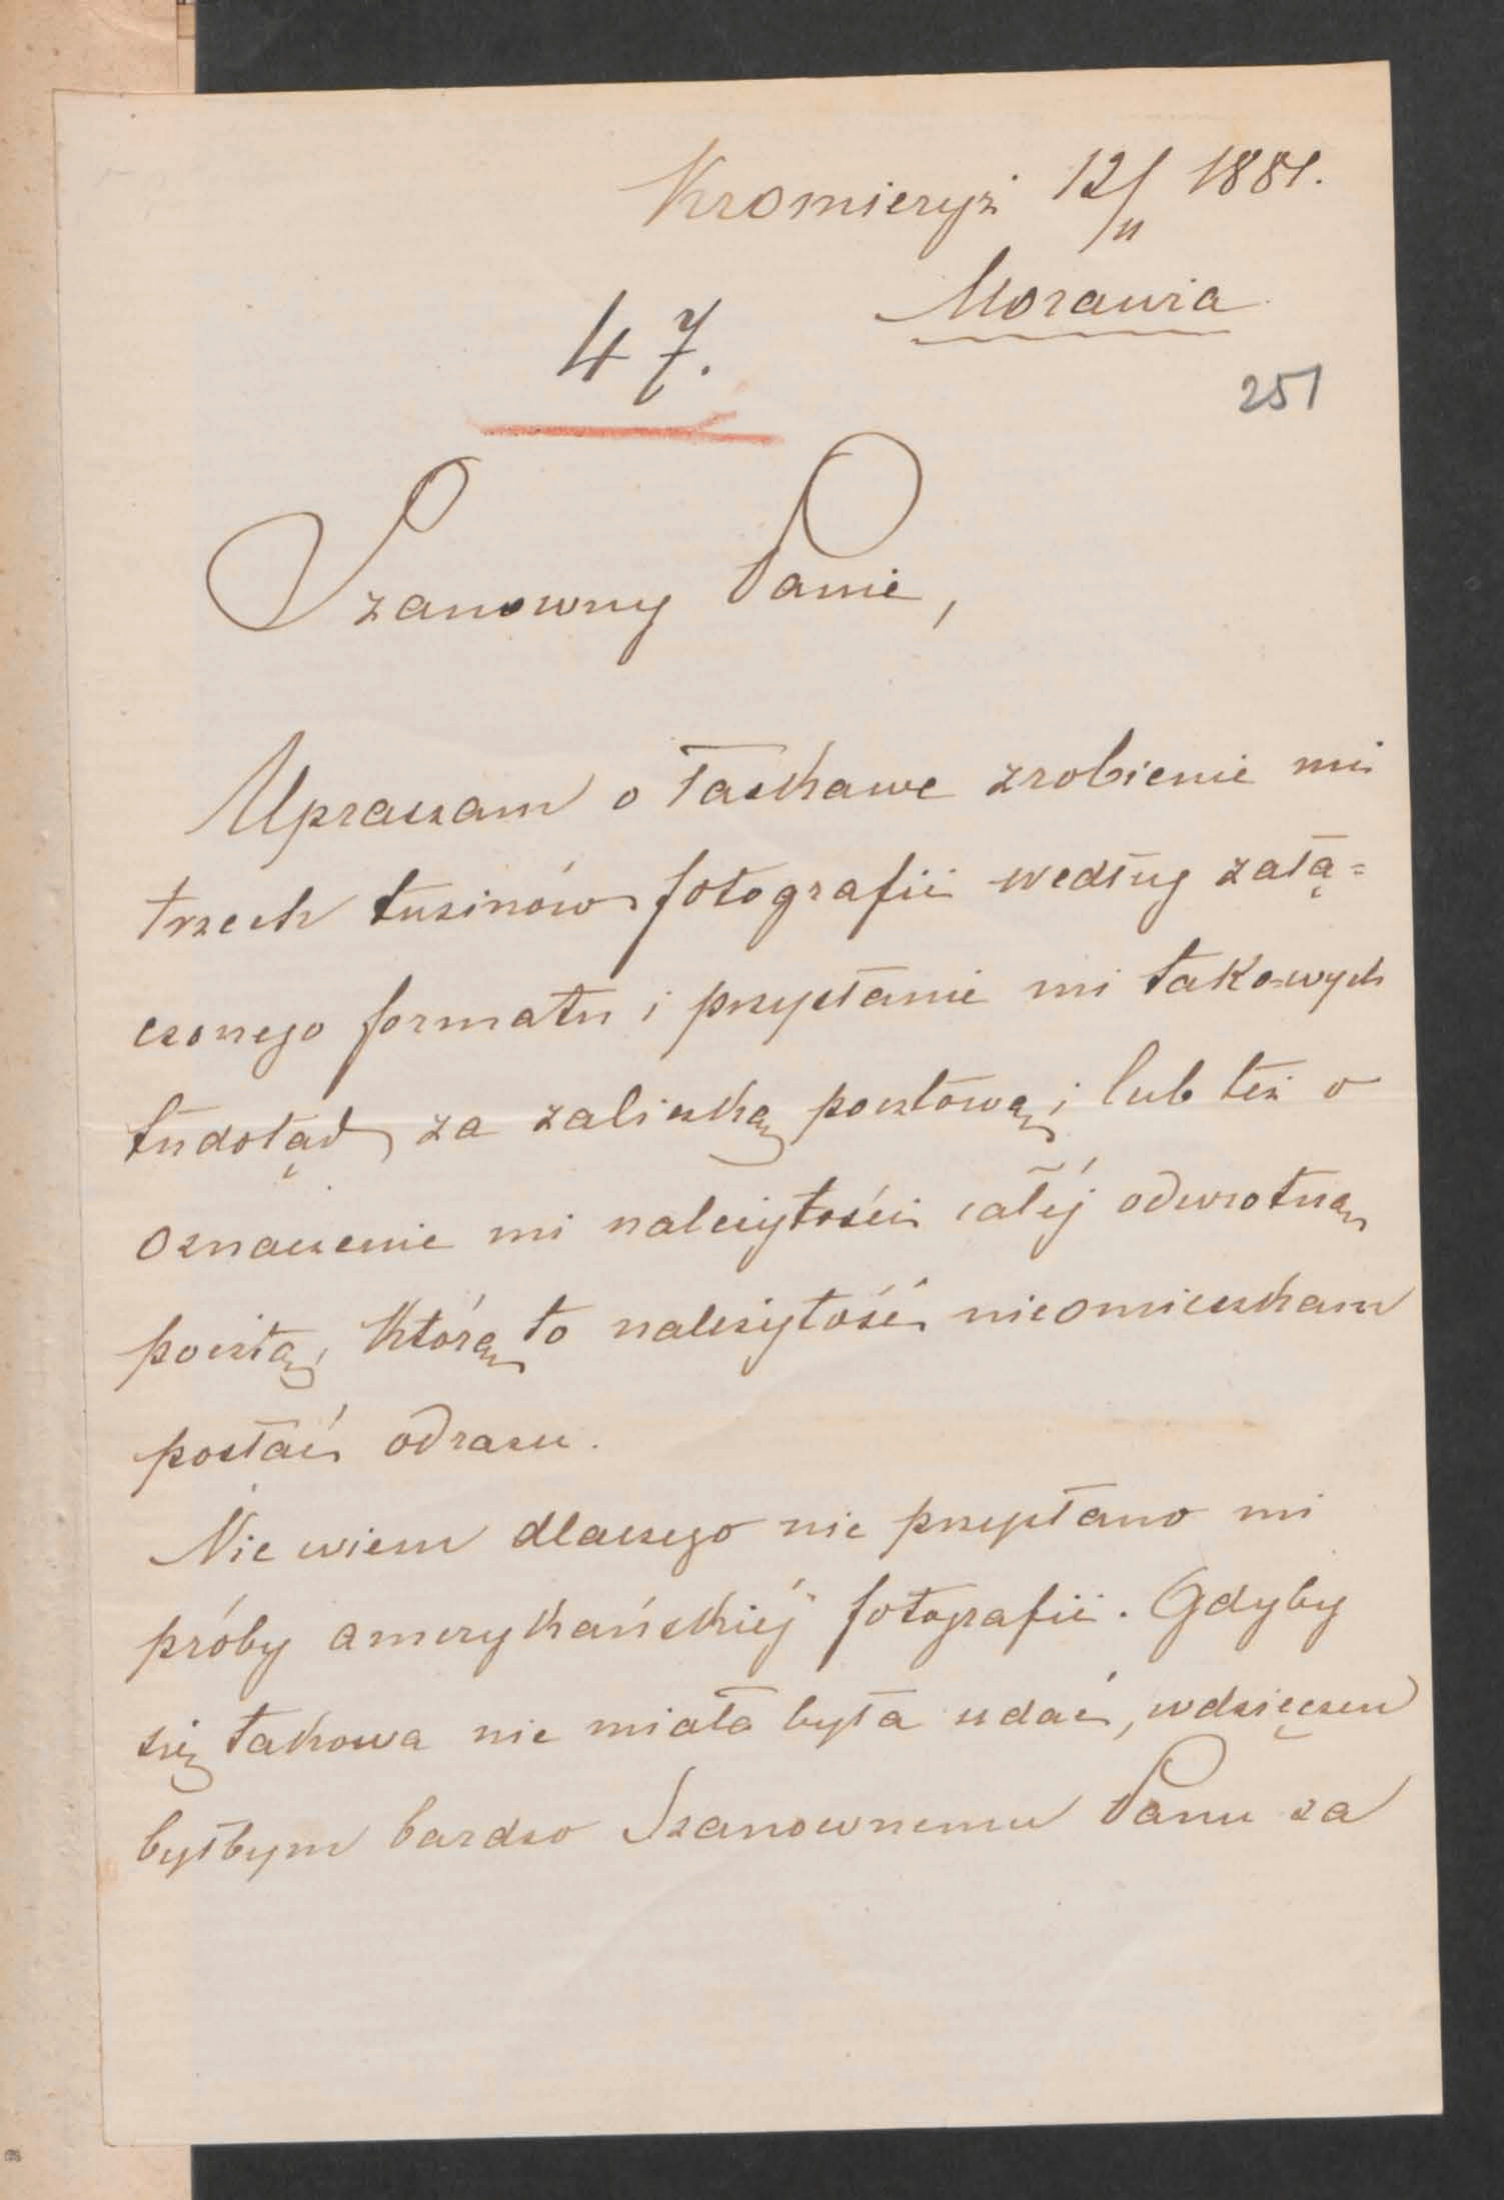 Kromieryż 12/II 1881.
Morawia
47.
251
Szanowny Panie,
Upraszam o łaskawe zrobienie mi
trzech tuzinów fotografii według załą=
czonego formatu i przysłanie mi takowych
tudotąd za zaliczką pocztową; lub też o
oznaczenie mi należytości całéj odwrotną
pocztą, którą to należytość nieomieszkam
posłać odrazu.
Nie wiem dlaczego nie przysłano mi
próby amerykańskiéj fotografii. Gdyby
się takowa nie miała była udać, wdzięczen
byłbym bardzo Szanownemu Panu za